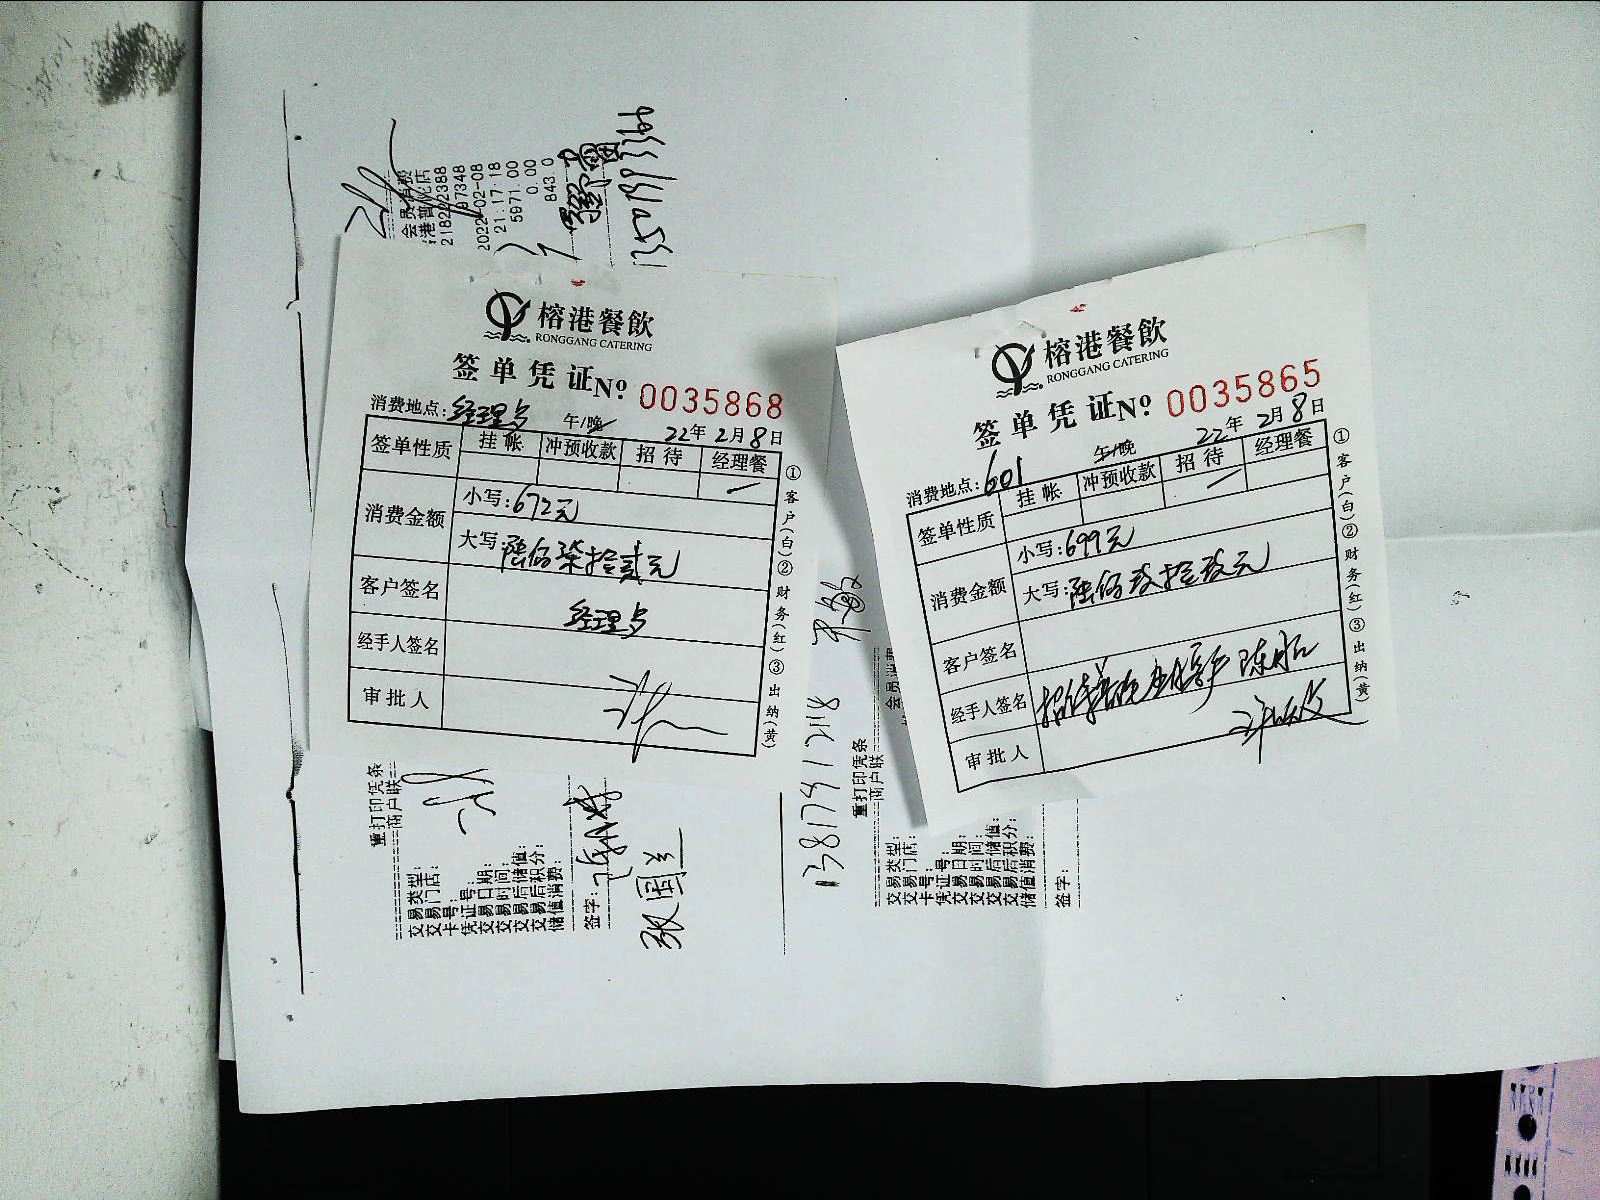 会员消费
港普陀店
218222388
97348
2022-02-08
21:17:18
5971.00
0.00
843.0
榕港餐飲
RONGGANG CATERING
签单凭证 No. 0035868
消费地点:经理 午/晚
22年2月8日
签单性质 挂帐 冲预收款 招待 经理餐
消费金额 小写:672元
大写:陆佰柒拾贰元
客户签名
经理
经手人签名
审批人
①客户(白)②财务(红)③出纳(黄)
榕港餐飲
RONGGANG CATERING
签单凭证 No. 0035865
消费地点:601 午/晚
22年2月8日
签单性质 挂帐 冲预收款 招待 经理餐
消费金额 小写:699元
大写:陆佰玖拾玖元
客户签名
经手人签名
审批人
①客户(白)②财务(红)③出纳(黄)
重打印凭条
商户联
交易类型:
交易门店:
卡号:
凭证号:
交易日期:
交易时间:
交易后储值:
交易后积分:
储值消费:
签字:
张国兰
13817941218
重打印凭条
商户联
会员消费
交易类型:
交易门店:
卡号:
凭证号:
交易日期:
交易时间:
交易后储值:
交易后积分:
储值消费:
签字: